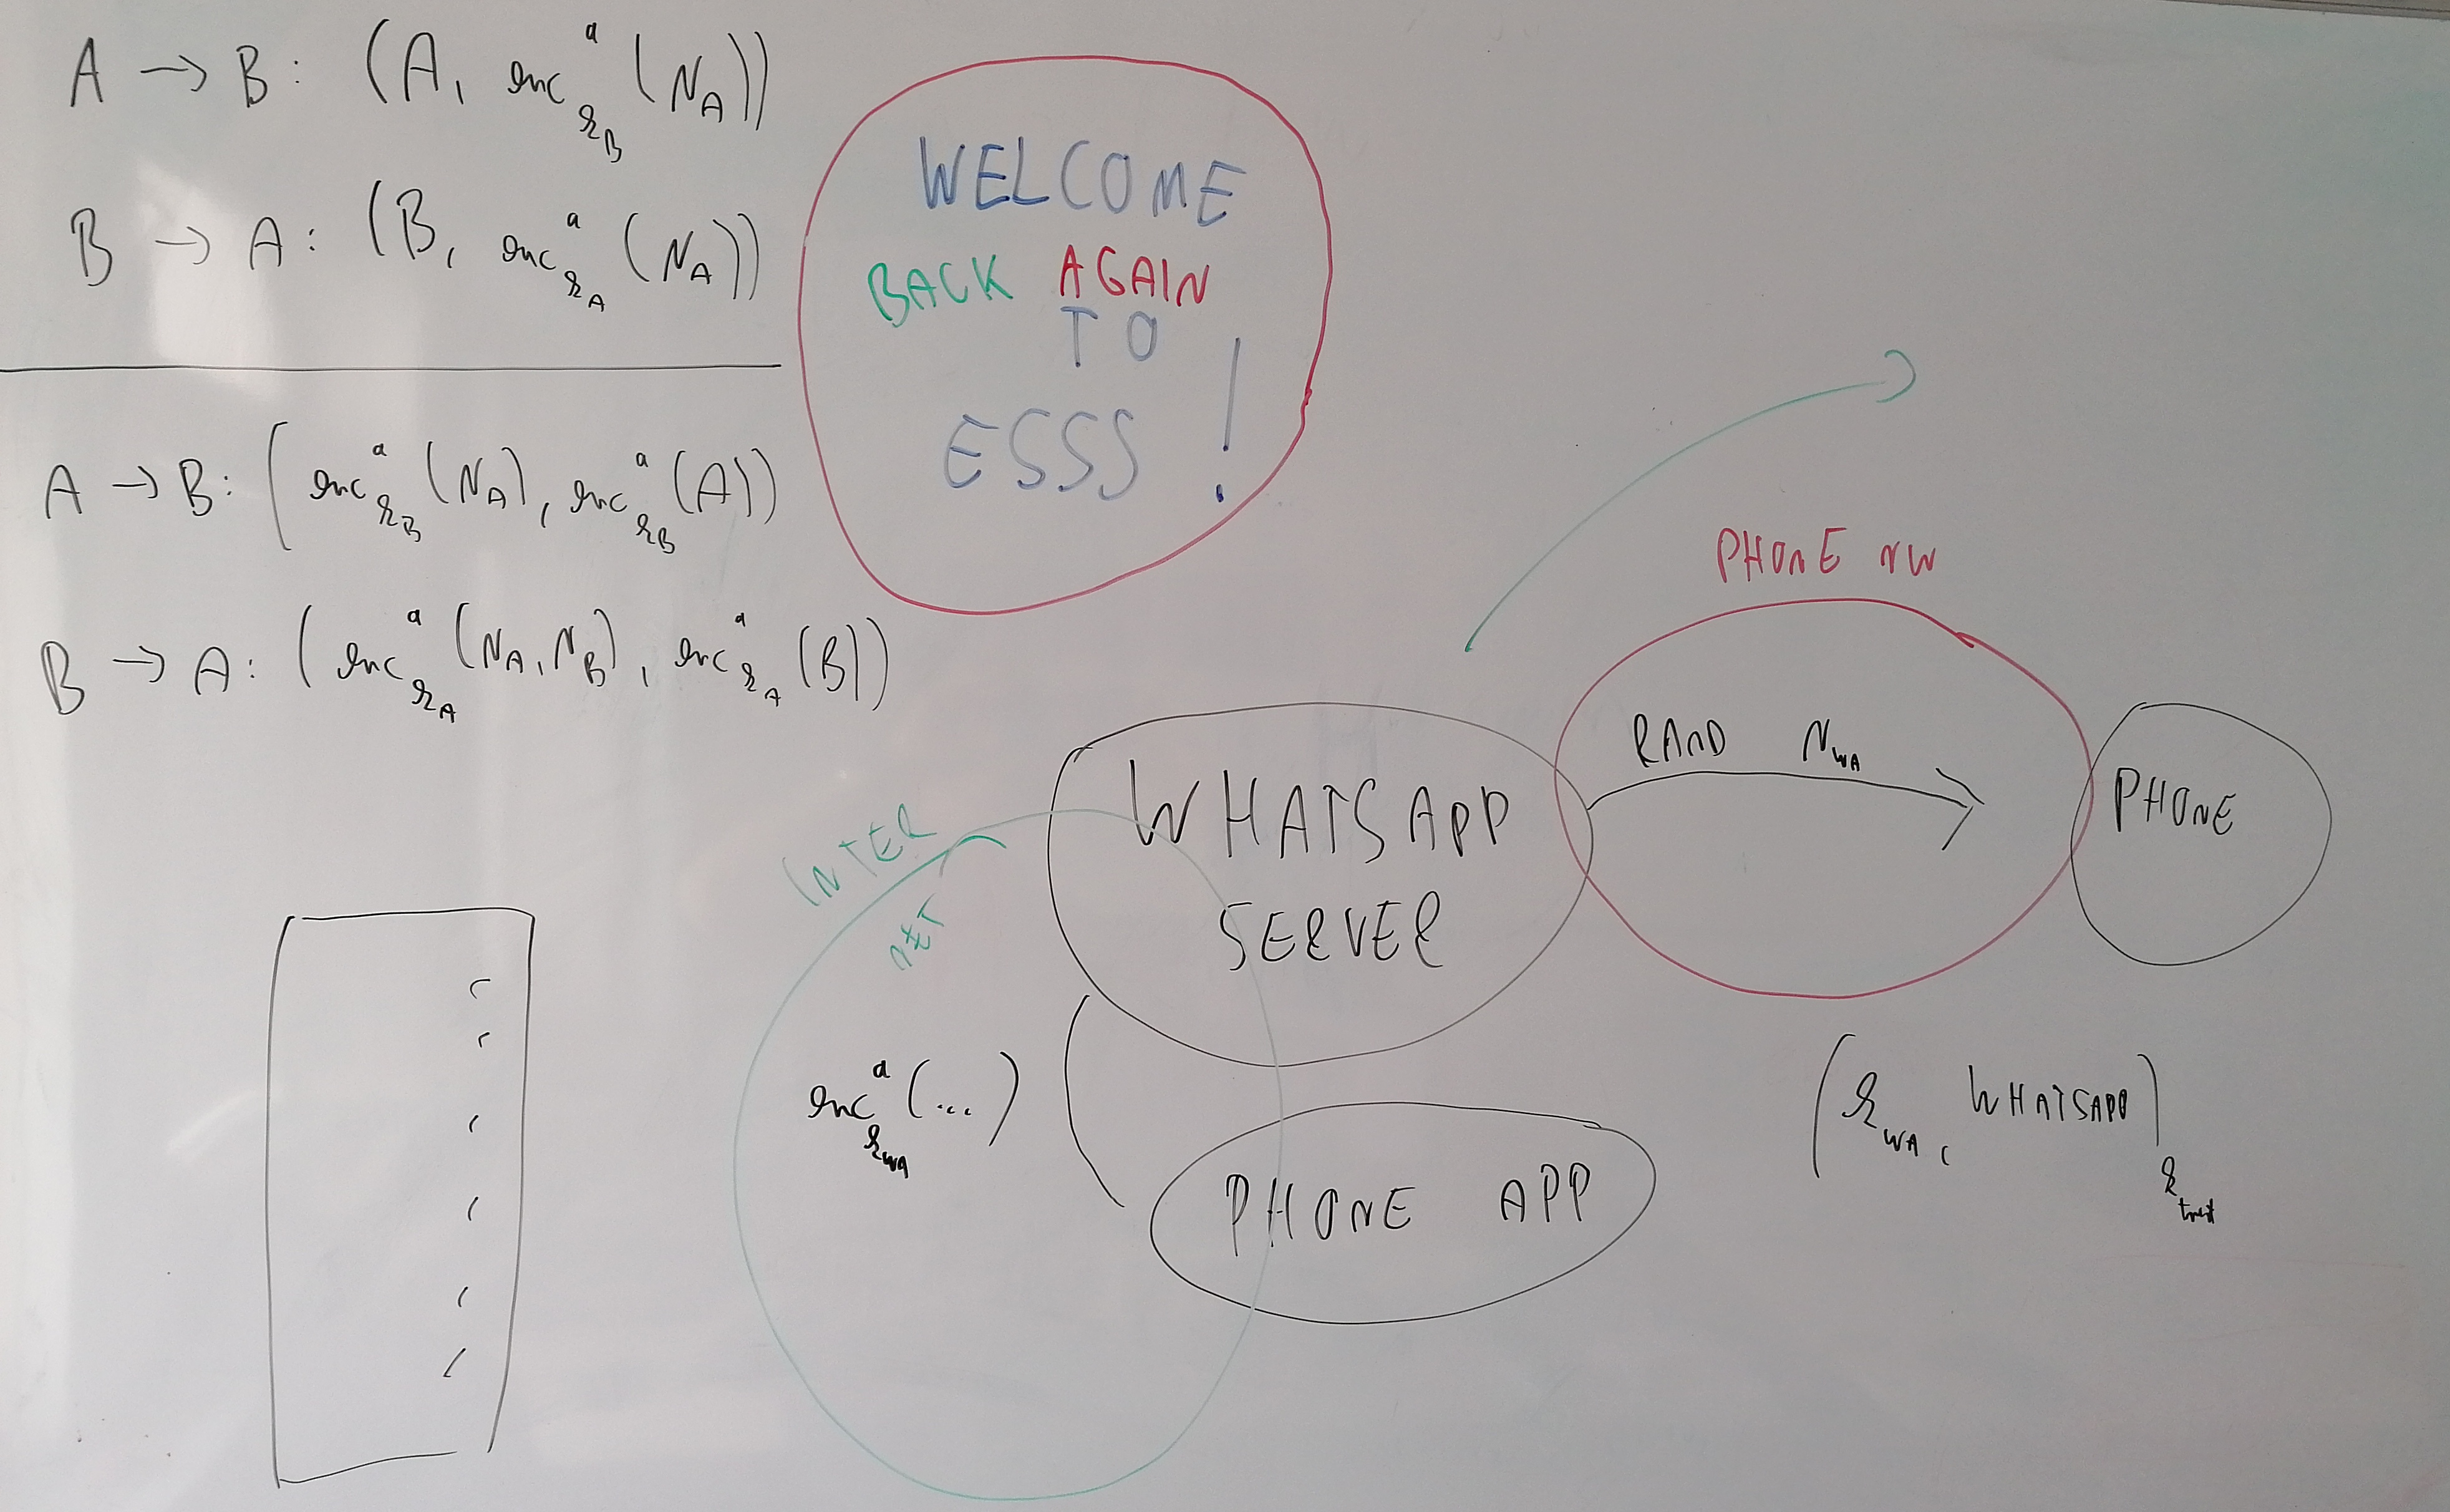 A → B: (A, enc^a_{k_B}(N_A))
B → A: (B, enc^a_{k_A}(N_A))
A → B: (enc^a_{k_B}(N_A), enc^a_{k_B}(A))
B → A: (enc^a_{k_A}(N_A, N_B), enc^a_{k_A}(B))
WELCOME
BACK AGAIN
TO
ESSS !
PHONE NW
RAND N_{WA}
PHONE
WHATSAPP
SERVER
INTER
NET
enc^a_{k_{WA}}(...)
PHONE APP
(k_{WA}, WHATSAPP)_{k_{trust}}